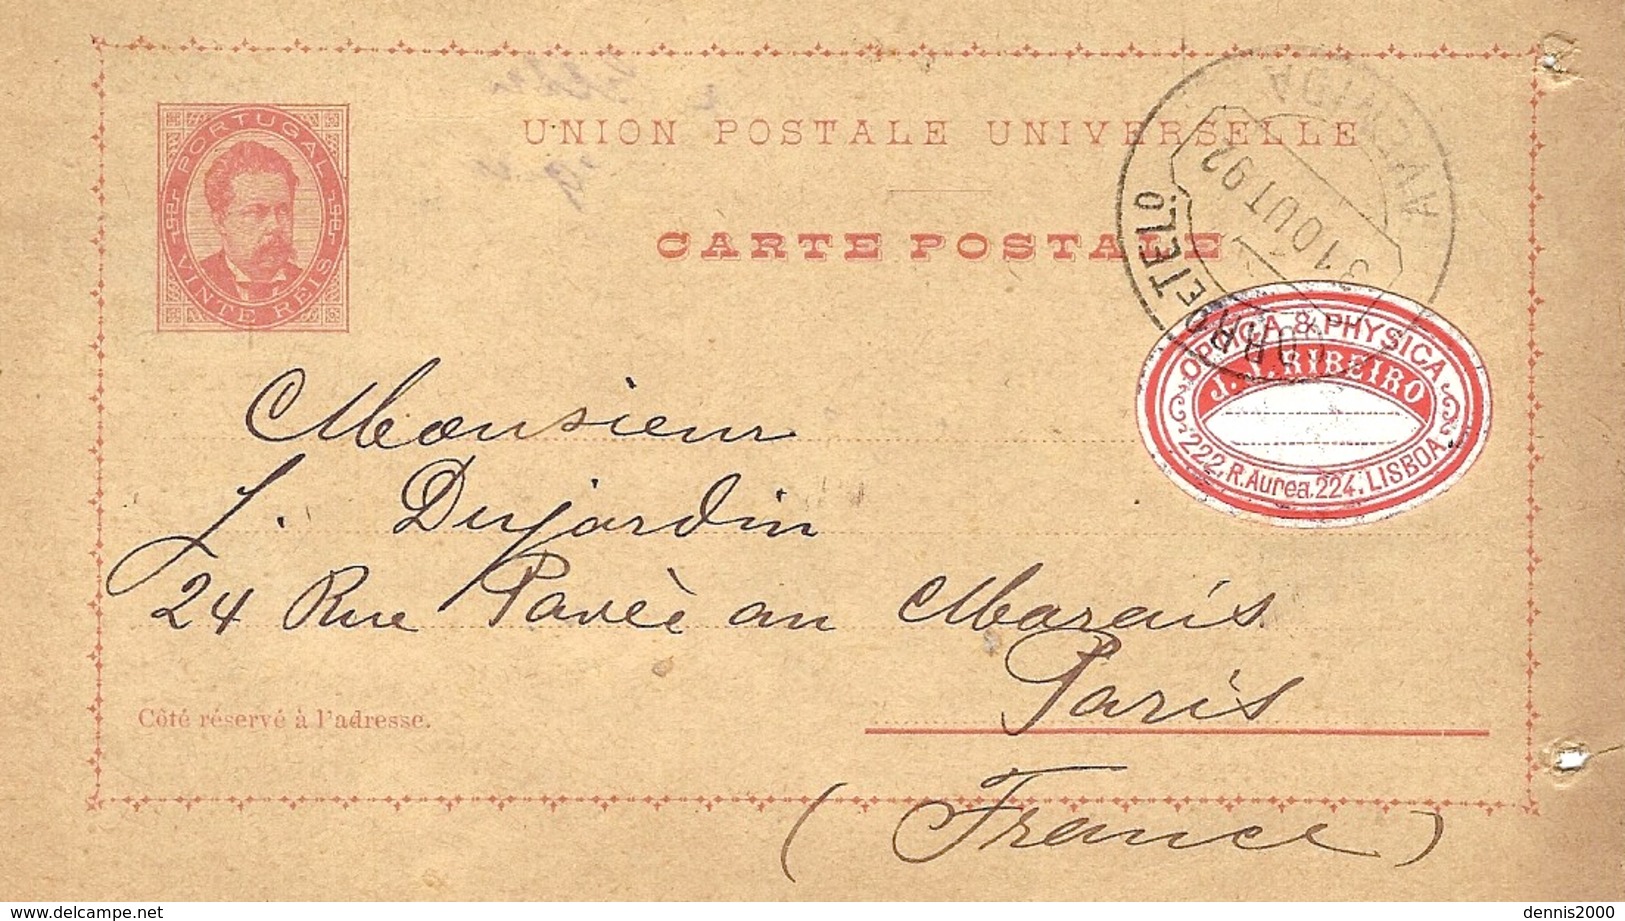 PORTUGAL
VINTE REIS
UNION POSTALE UNIVERSELLE
CARTE POSTALE
AVENIDA
31 OUT 92
OPTICA & PHYSICA
J. V. RIBEIRO
222, R. Aurea. 224. LISBOA
Monsieur
J. Dujardin
24 Rue Pavée au Marais
Paris
Côté réservé à l'adresse.
(France)
dennis2000